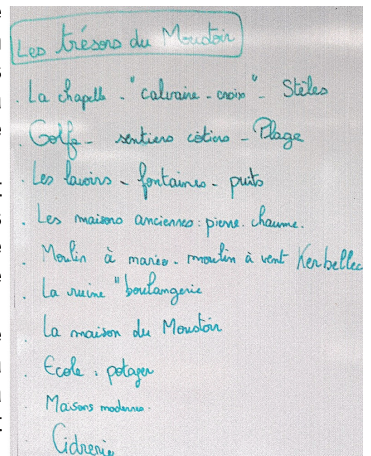 Les trésors du Moustoir
. La chapelle - "calvaire - croix" - Stèles
. Golfe - sentiers côtiers - Plage
. Les lavoirs - fontaines - puits
. Les maisons anciennes : pierre. chaume.
. Moulin à marée - moulin à vent Kerbellec
. La ruine "boulangerie
. La maison du Moustoir
. Ecole : potager
. Maisons modernes.
. Cidrerie